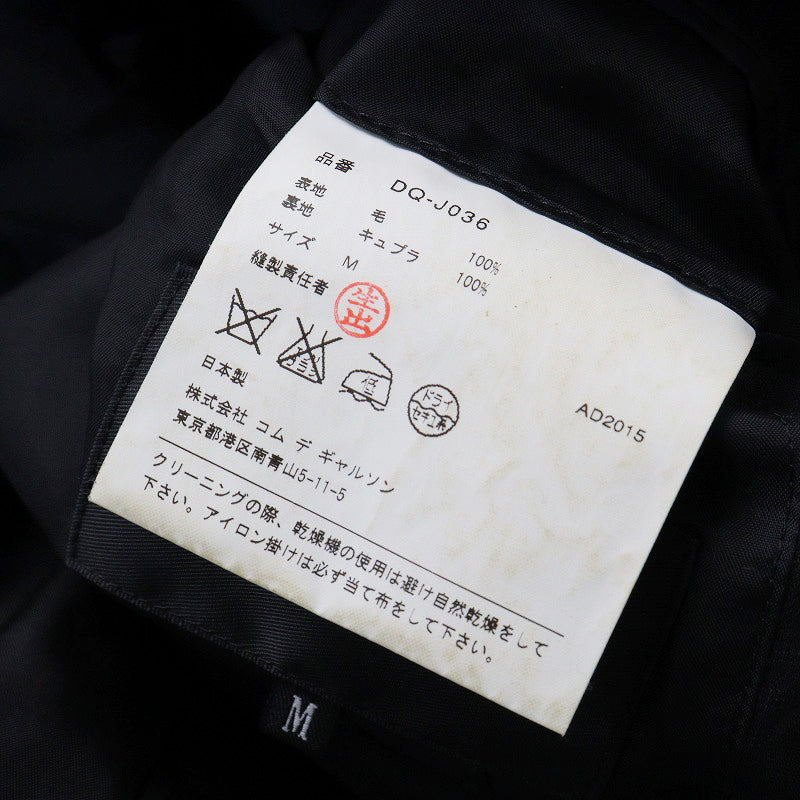 品番 DQ-J036
表地 毛 100%
裏地 キュプラ 100%
サイズ M
縫製責任者 生出
エンソ サラシ 低 ドライ セキユ系
日本製 AD2015
株式会社 コム デ ギャルソン
東京都港区南青山5-11-5
クリーニングの際、乾燥機の使用は避け自然乾燥をして
下さい。アイロン掛けは必ず当て布をして下さい。
M